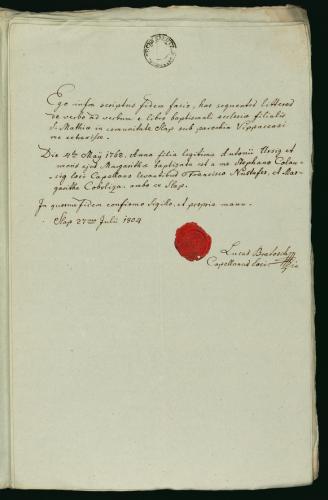 Ego infra scriptus fidem facio, has sequentes litteras
de verbo ad verbum e libro baptismali ecclesiæ filialis
S. Mathiæ in comunitate Slap sub parochia Vippacensi
me extraxisse.
Die 4ta Maÿ 1768. Anna filia legitima Antonii Ursig et
Margarithæ baptizata est a me Stephano
loci Capellano levantibus Francisco et Mar-
garitha ambo ex Slap.
In quorum fidem confirmo Sigillo, et propria manu.
Slap 27ma Julii 1804
Lucas
Capellanus loci